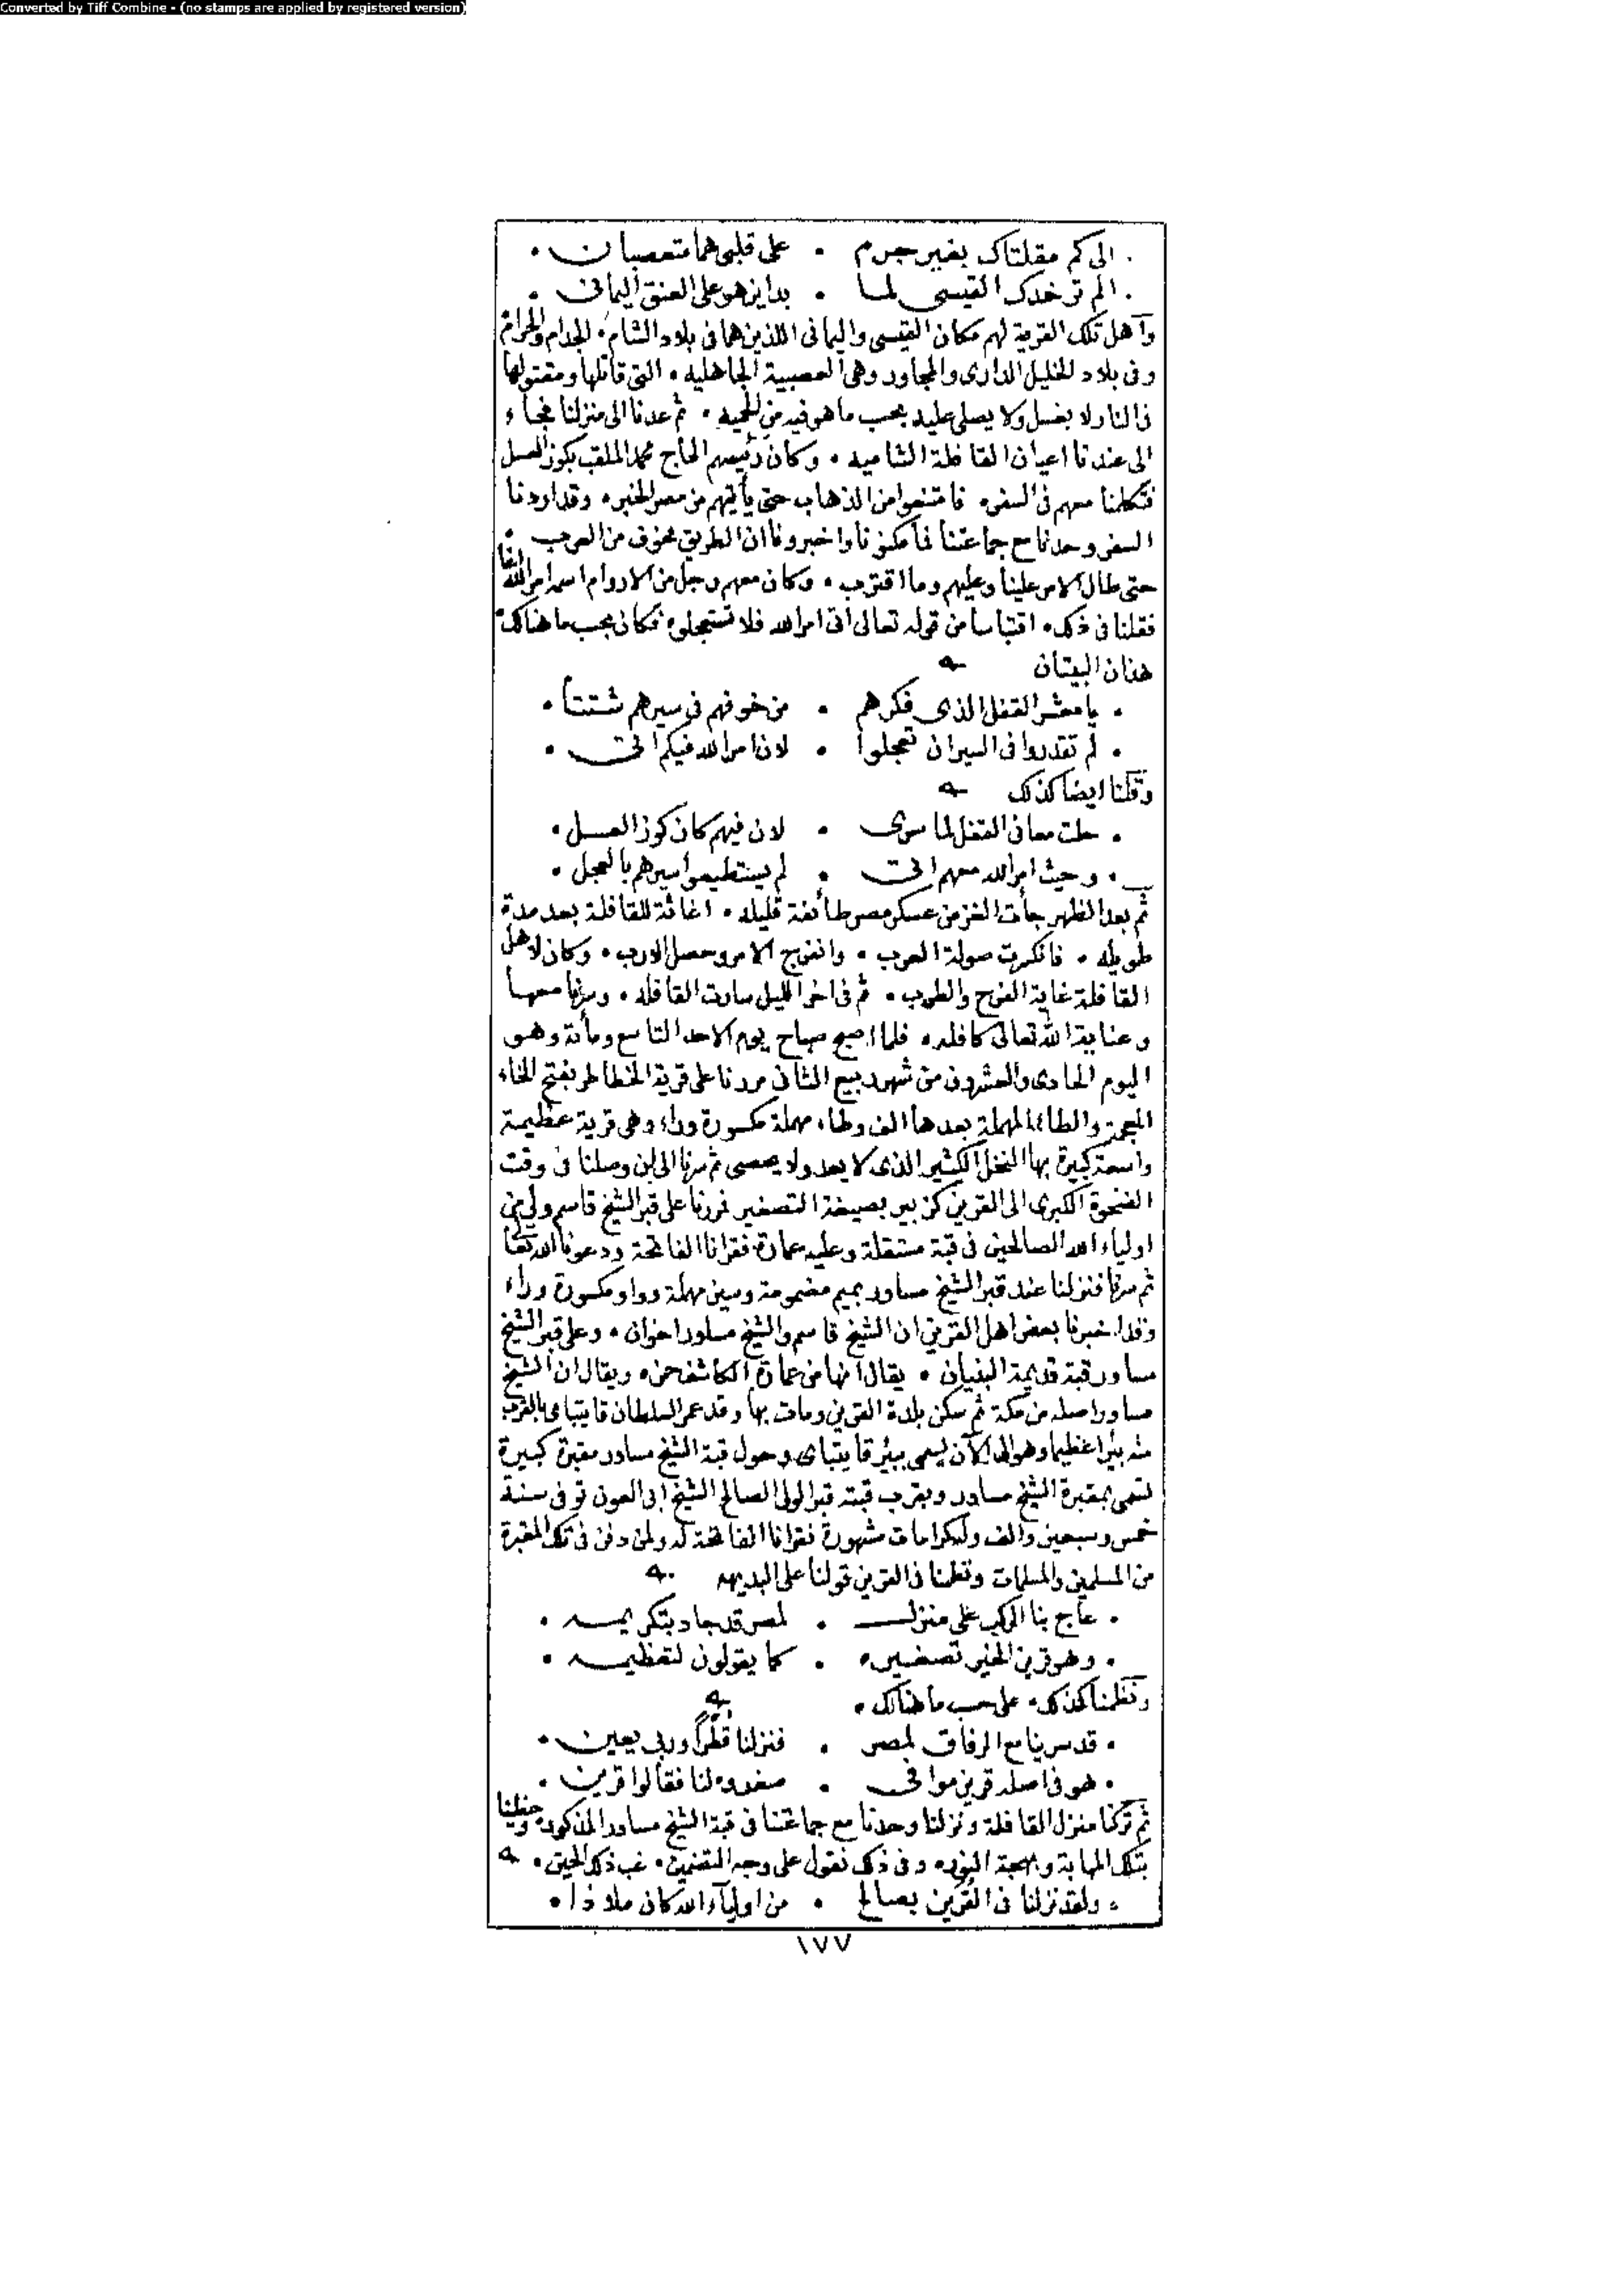 Converted by Tiff Combine - (no stamps are applied by registered version)
. الى كم مقلتاك بغير جرم . على قلبى هما متعصبان .
. الم تر خدك القيسى لما . بدا يزهو على العنق اليمانى .
وأهل تلك القرية لهم مكان القيسى واليمانى اللذين هما فى بلاد الشام . الجدام والحرام
وفى بلاد الخليل الدارى والمجاور وهى العصبية الجاهليه . التى قاتلها ومقتولها
فى النار لا يغسل ولا يصلى عليه بحسب ما هو فيه من الحميه . ثم عدنا الى منزلنا فجاء
الى عندنا اعيان القافلة الشاميه . وكان رئيسهم الحاج محمد الملقب بكوز العسل
فتكلمنا معهم فى السفر . فامتنعوا من الذهاب حتى يأتيهم من مصر الخبر . وقد اردنا
السفر وحدنا مع جماعتنا فما مكنونا واخبرونا ان الطريق مخوف من العرب .
حتى طال الامر علينا وعليهم وما اقترب . وكان معهم رجل من الاروام اسمه امر الله
فقلنا فى ذلك . اقتباسا من قوله تعالى أتى امر الله فلا تستعجلوه فكان بحسب ما هناك .
هذان البيتان
. يا معشر القفل الذى فكرهم . من خوفهم فى سيرهم شتتا .
. لم تقدروا فى السير ان تعجلوا . لان امر الله فيكم اتى .
وقلنا ايضا كذلك
. حلت معانى القفل لما سرى . لان فيهم كان كوز العسل .
. وحيث امر الله معهم اتى . لم يستطيعوا سيرهم بالعجل .
ثم بعد الظهر جأت الغز من عسكر مصر طائفة قليله . اغاثة للقافلة بعد مدة
طويله . فانكسرت صولة العرب . وانفرج الامر وحصل الارب . وكان لاهل
القافلة غاية الفرح والطرب . ثم فى اخر الليل سارت القافله . وسرنا معها
وعناية الله تعالى كافله . فلما اصبح صباح يوم الاحد التاسع ومأتة وهو
اليوم الحادى والعشرون من شهر ربيع الثانى مررنا على قرية الخطاطر بفتح الخاء
المعجمة والطاء المهملة بعدها الف وطاء مهملة مكسورة وراء وهى قرية عظيمة
واسعة كبيرة بها النخل الكثير الذى لا يعد ولا يحصى ثم سرنا الى ان وصلنا فى وقت
الضحوة الكبرى الى القرين كزبير بصيغة التصغير فمررنا على قبر الشيخ قاسم ولى من
اولياء الله الصالحين فى قبة مستقلة وعليه عمارة فقرانا الفاتحة ودعونا الله تعا
ثم سرنا فنزلنا عند قبر الشيخ مساور بميم مضمومة وسين مهملة وواو مكسورة وراء
وقد اخبرنا بعض اهل القرين ان الشيخ قاسم والشيخ مساور اخوان . وعلى قبر الشيخ
مساور قبة قديمة البنيان . يقال انها من عمارة الكاشف حمزه ويقال ان الشيخ
مساور اصله من مكة ثم سكن بلدة القرين ومات بها وقد عمر السلطان قايتباى بالقرب
منه بئرا عظيما وهو الى الآن يسمى ببئر قايتباى وحول قبة الشيخ مساور مقبرة كبيرة
تسمى بمقبرة الشيخ مساور وبقرب قبته قبر الولى الصالح الشيخ ابى العون توفى سنة
خمس وسبعين والف وله كرامات مشهورة فقرانا الفاتحة له ولمن دفن فى تلك المقبرة
من المسلمين والمسلمات ونظمنا فى القرين قولنا على البديهه
. عاج بنا الركب على منزل . لمصر قد جاد بتكريمه .
. وهو قرين الخير تصغيره . كما يقولون لتعظيمه .
ونظمنا كذلك . على حسب ما هنالك .
. قد سرينا مع الرفاق لمصر . فنزلنا قطرا وربى يعين .
. هو فى اصله قرين موافى . صغروه لنا فقالوا قرين .
ثم تركنا منزل القافلة ونزلنا وحدنا مع جماعتنا فى قبة الشيخ مساور المذكور وحظينا
بتلك المهابة وبهجة النور . وفى ذلك نقول على وجه التضمين . غب ذلك الحين .
. ولقد نزلنا فى القرين بصالح . من اوليآء الله كان ملاذا .
١٧٧